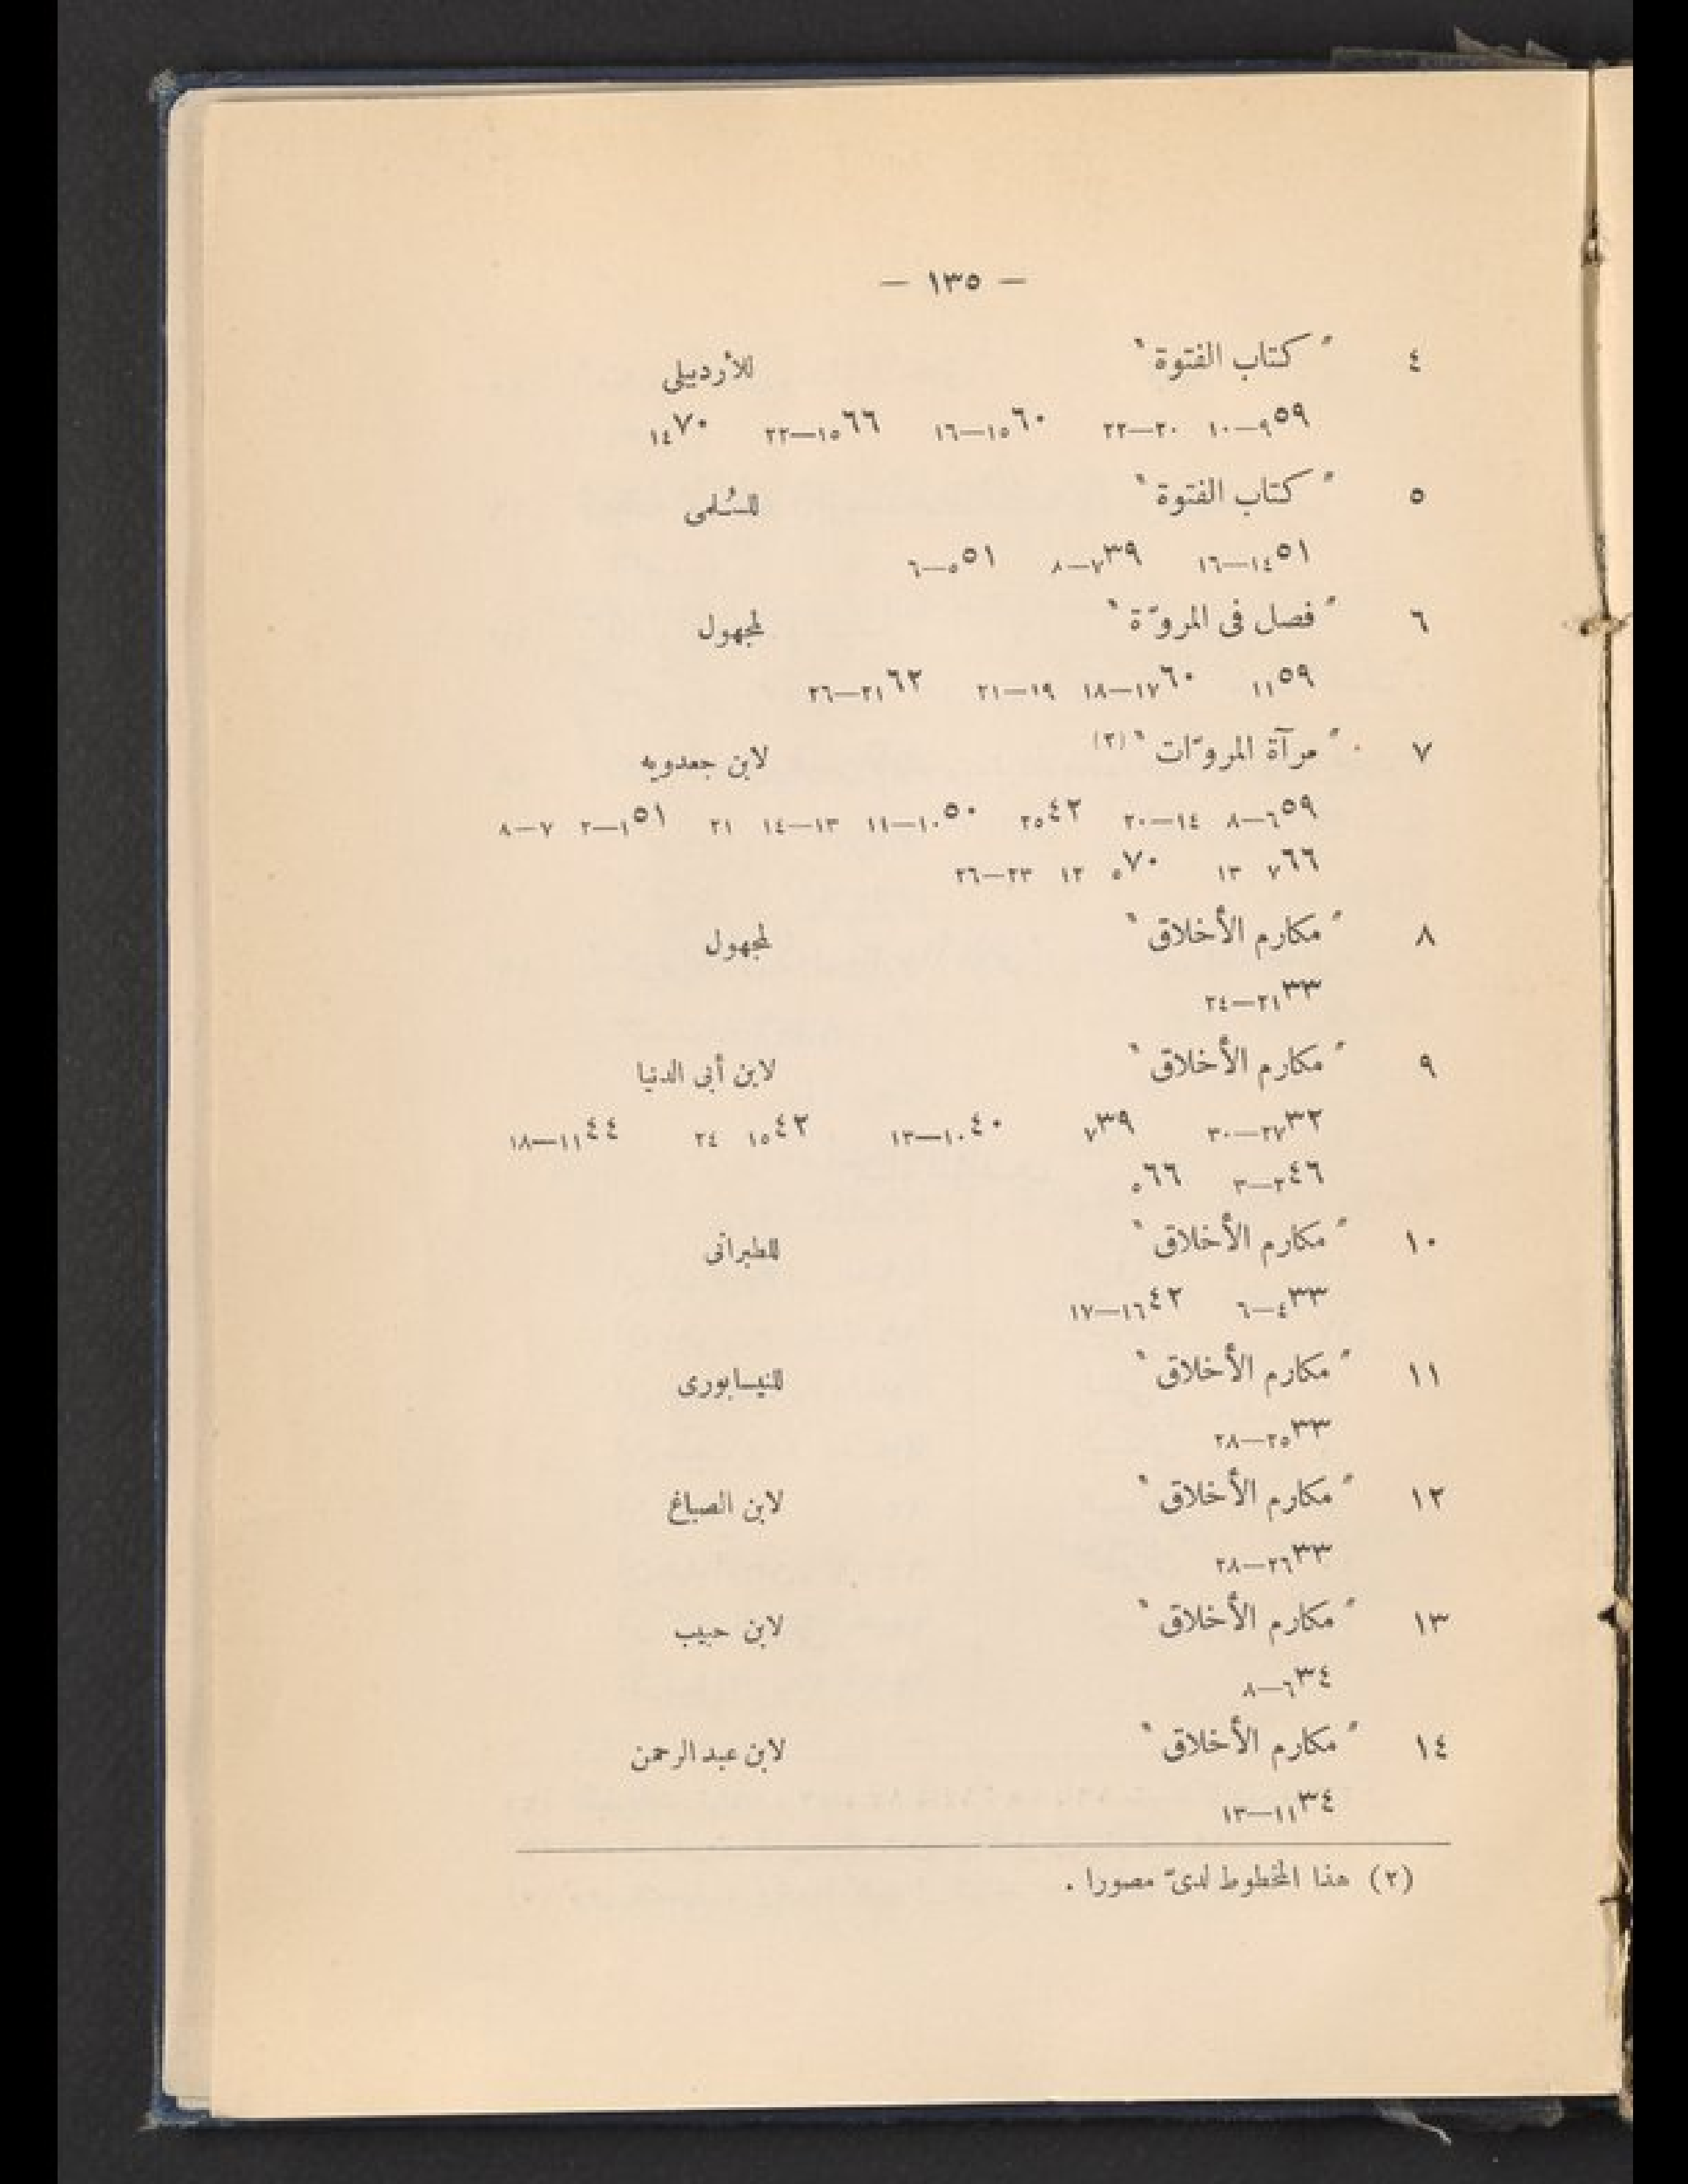 — ١٣٥ —
٤ "كتاب الفتوة" للأردبيلى
٥٩ ٩—١٠ ٢٠—٢٢ ٦٠ ١٥—١٦ ٦٦ ١٥—٢٢ ٧٠ ١٤
٥ "كتاب الفتوة" للسُلمى
٥١ ١٤—١٦ ٣٩ ٧—٨ ٥١ ٥—٦
٦ "فصل فى المروّة" لمجهول
٥٩ ١١ ٦٠ ١٧—١٨ ١٩—٢١ ٦٢ ٢١—٢٦
٧ "مرآة المروّات" (٢) لابن جعدويه
٥٩ ٦—٨ ١٤—٢٠ ٤٢ ٢٥ ٥٠ ١٠—١١ ١٣—١٤ ٢١ ٥١ ١—٢ ٧—٨
٦٦ ٧ ١٣ ٧٠ ٥ ١٢ ٢٣—٢٦
٨ "مكارم الأخلاق" لمجهول
٣٣ ٢١—٢٤
٩ "مكارم الأخلاق" لابن أبى الدنيا
٣٢ ٢٧—٣٠ ٣٩ ٧ ٤٠ ١٠—١٣ ٤٢ ١٥ ٢٤ ٤٤ ١١—١٨
٤٦ ٢—٣ ٦٦ ٥
١٠ "مكارم الأخلاق" للطبرانى
٣٣ ٤—٦ ٤٢ ١٦—١٧
١١ "مكارم الأخلاق" للنيسابورى
٣٣ ٢٥—٢٨
١٢ "مكارم الأخلاق" لابن الصباغ
٣٣ ٢٦—٢٨
١٣ "مكارم الأخلاق" لابن حبيب
٣٤ ٦—٨
١٤ "مكارم الأخلاق" لابن عبد الرحمن
٣٤ ١١—١٣
(٢) هذا المخطوط لدىّ مصورا .